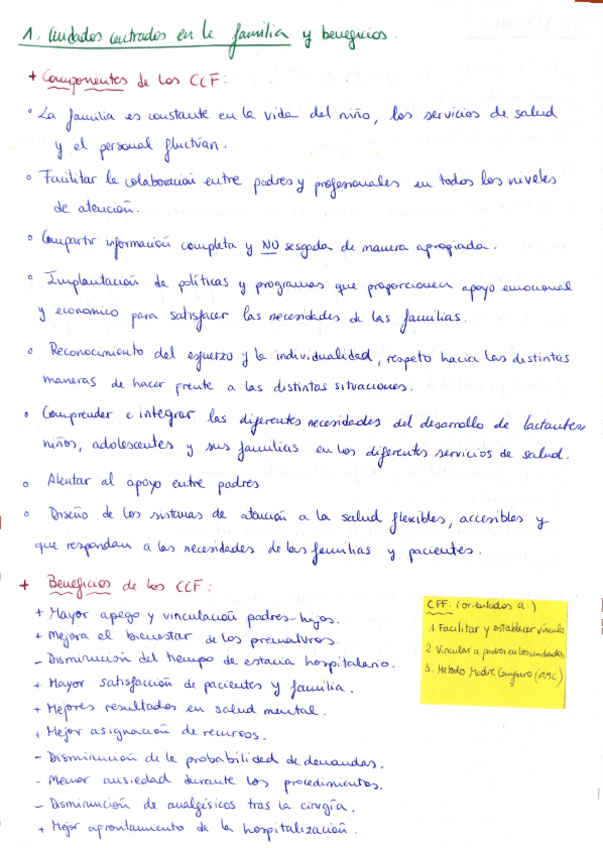 1. Cuidados centrados en la familia y beneficios.
+ Componentes de los CCF:
° La familia es constante en la vida del niño, los servicios de salud
y el personal fluctúan.
° Facilitar la colaboración entre padres y profesionales en todos los niveles
de atención.
° Compartir información completa y NO sesgada de manera apropiada.
° Implantación de políticas y programas que proporcionen apoyo emocional
y económico para satisfacer las necesidades de las familias.
° Reconocimiento del esfuerzo y la individualidad, respeto hacia las distintas
maneras de hacer frente a las distintas situaciones.
° Comprender e integrar las diferentes necesidades del desarrollo de lactantes
niños, adolescentes y sus familias en los diferentes servicios de salud.
° Alentar al apoyo entre padres
° Diseño de los sistemas de atención a la salud flexibles, accesibles y
que respondan a las necesidades de las familias y pacientes.
+ Beneficios de los CCF:
+ Mayor apego y vinculación padres-hijos.
+ Mejora el bienestar de los prematuros.
- Disminución del tiempo de estacia hospitalario.
+ Mayor satisfacción de pacientes y familia.
+ Mejores resultados en salud mental.
+ Mejor asignación de recursos.
- Disminución de la probabilidad de demandas.
- Menor ansiedad durante los procedimientos.
- Disminución de analgésicos tras la cirugía.
+ Mejor afrontamiento de la hospitalización.
CFF: (orientados a:)
1. Facilitar y establecer vínculo
2. Vincular a padres en los cuidados
3. Metodo Madre Canguro (MMC)